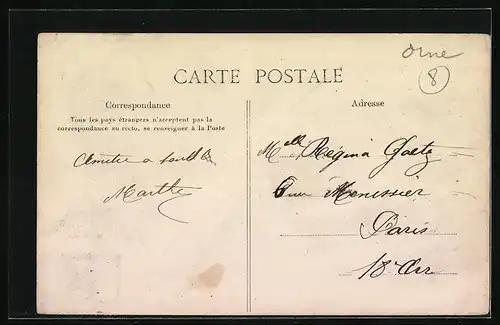 Orne
8
CARTE POSTALE
Correspondance
Adresse
Tous les pays étrangers n'acceptent pas la
correspondance au recto, se renseigner à la Poste
Amitié a
Marthe
Melle Régina Goetz
6 rue Menessier
Paris
18e Arr